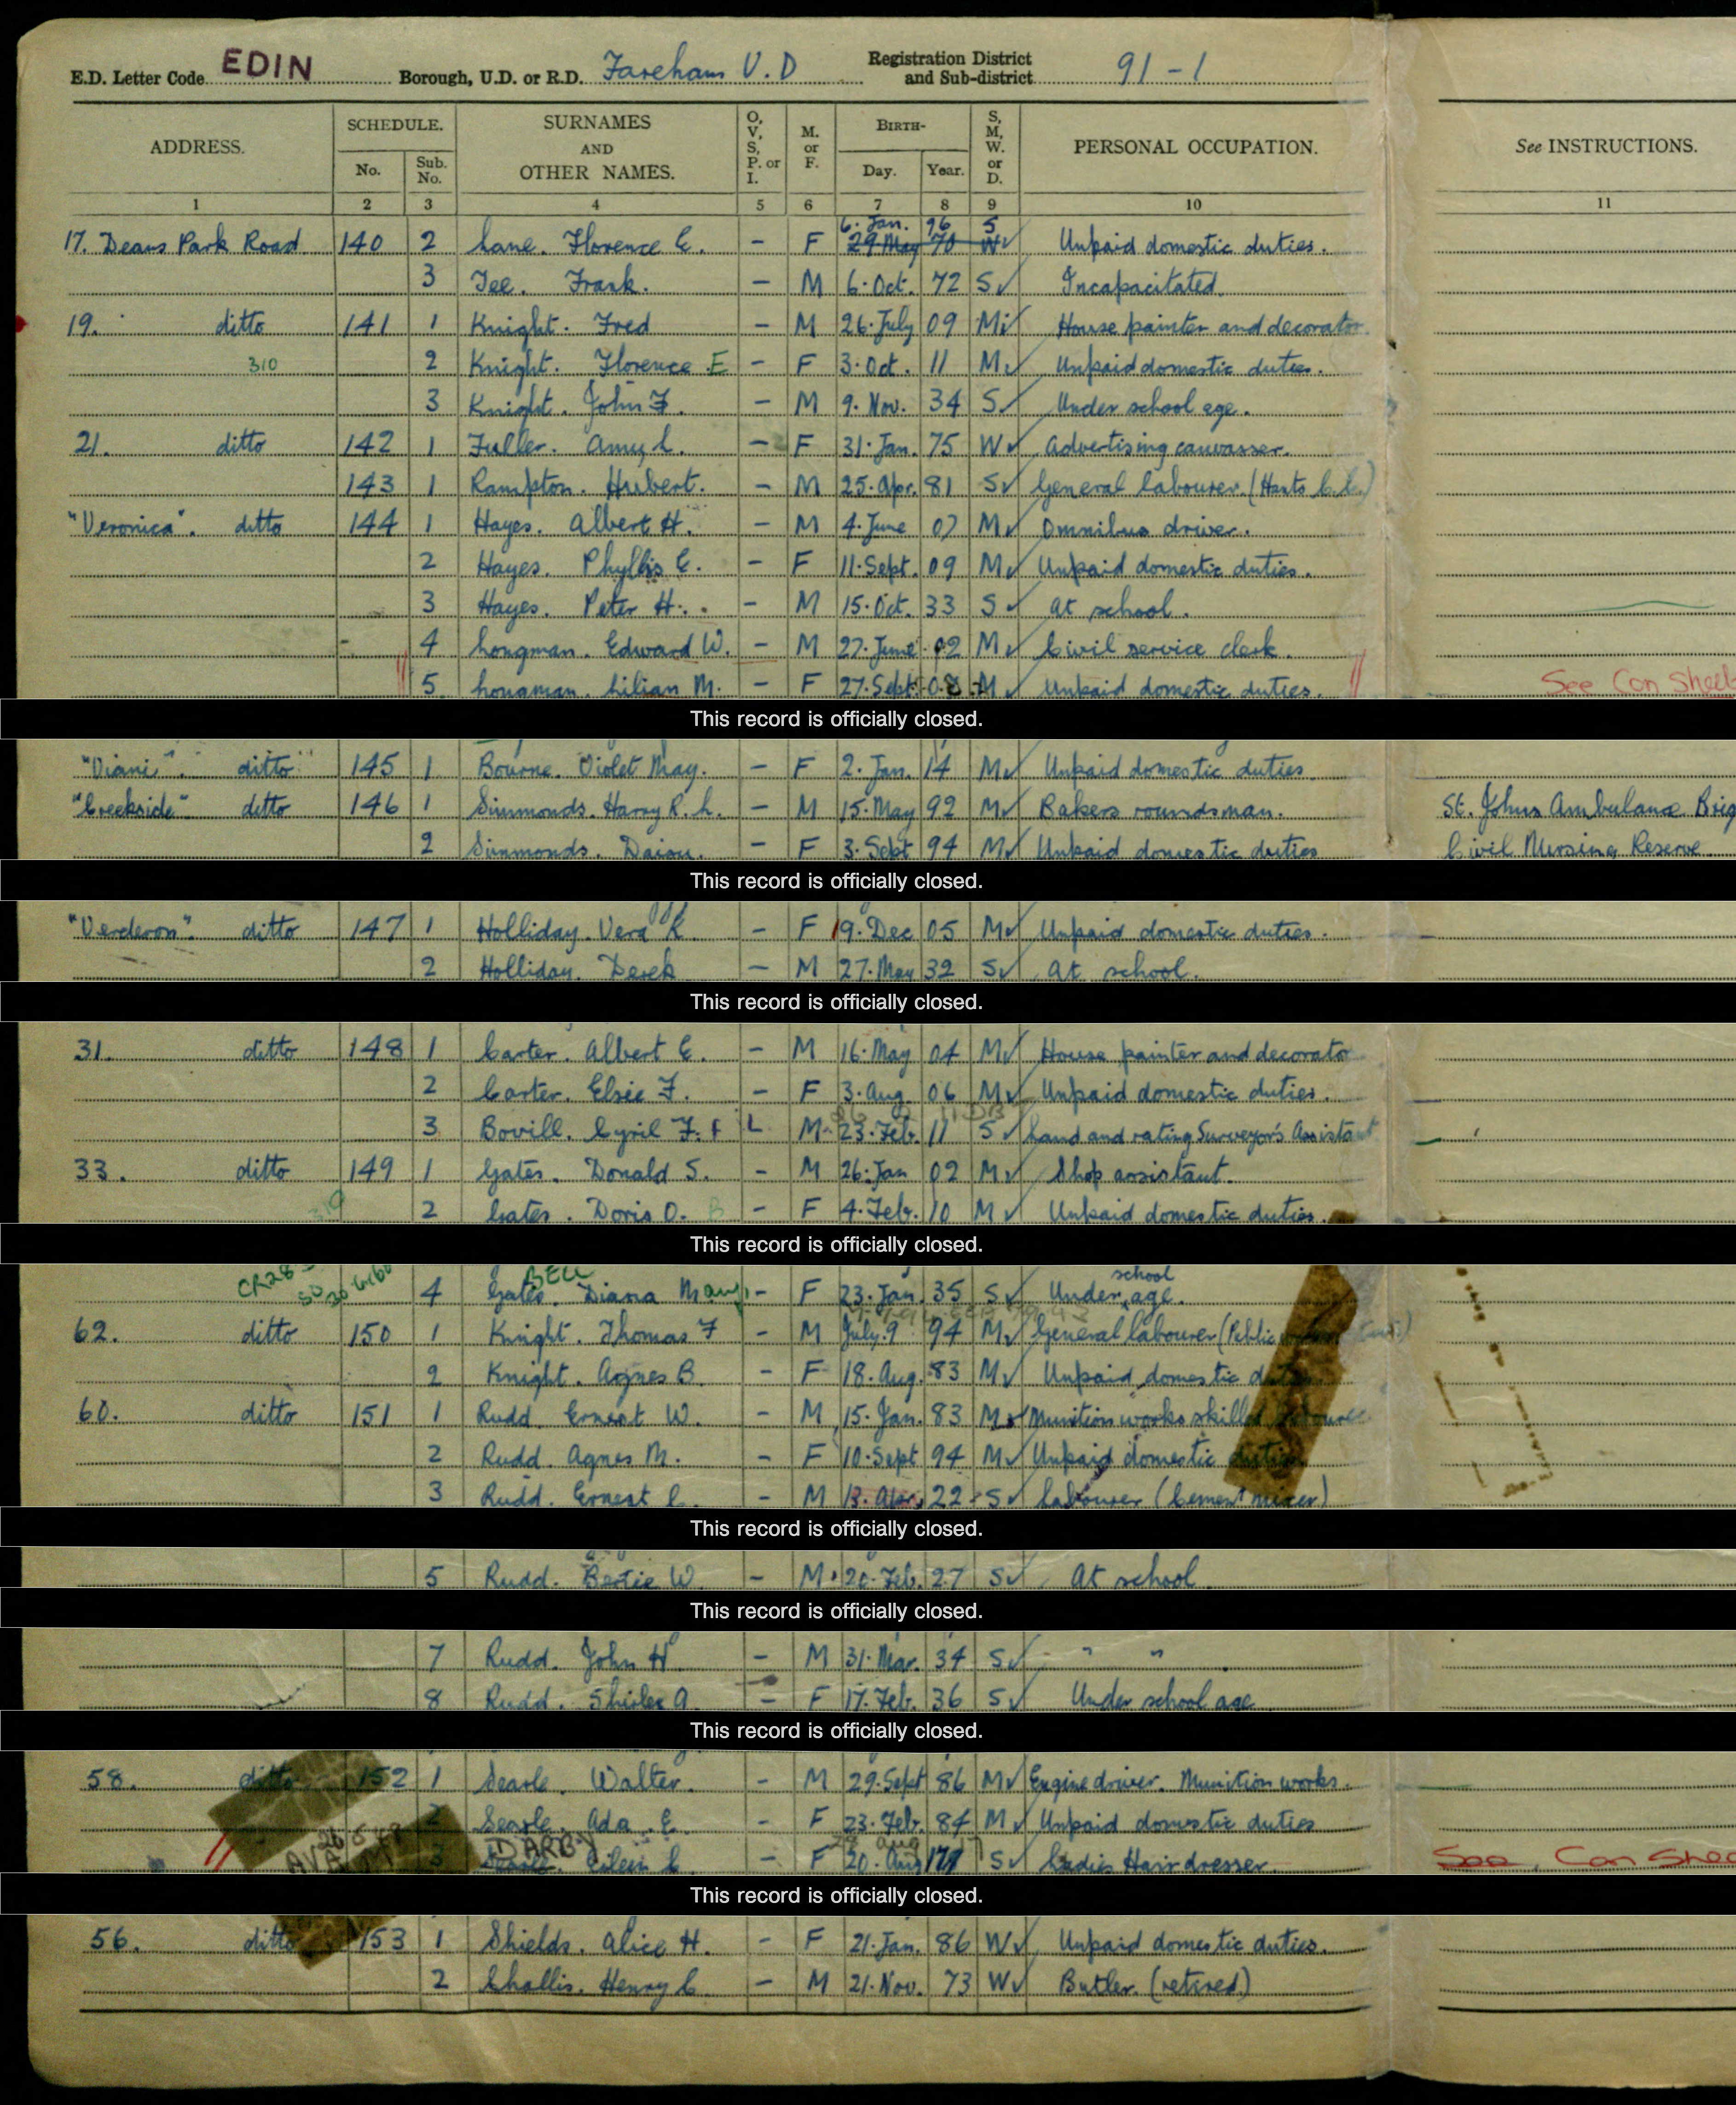 E.D. Letter Code EDIN Borough, U.D. or R.D. Fareham U.D Registration District and Sub-district 91-1
ADDRESS. SCHEDULE. No. Sub. No. SURNAMES AND OTHER NAMES. O, V, S, P. or I. M. or F. BIRTH- Day. Year. S, M, W. or D. PERSONAL OCCUPATION. See INSTRUCTIONS.
1 2 3 4 5 6 7 8 9 10 11
6. Jan. 96 S
17. Deans Park Road 140 2 Lane. Florence E. - F 29 May 70 W Unpaid domestic duties.
3 Tee. Frank. - M 6. Oct. 72 S Incapacitated.
19. ditto 141 1 Knight. Fred - M 26. July 09 M House painter and decorator
310 2 Knight. Florence E - F 3. Oct. 11 M Unpaid domestic duties.
3 Knight. John F. - M 9. Nov. 34 S Under school age.
21. ditto 142 1 Fuller. Amy L. - F 31. Jan. 75 W Advertising canvasser.
143 1 Rampton. Hubert. - M 25. Apr. 81 S General labourer. (Hants C.C.)
"Veronica". ditto 144 1 Hayes. Albert H. - M 4. June 07 M Omnibus driver.
2 Hayes. Phyllis E. - F 11. Sept. 09 M Unpaid domestic duties.
3 Hayes. Peter H. - M 15. Oct. 33 S At school.
4 Longman. Edward W. - M 27. June 02 M Civil service clerk.
5 Longman. Lilian M. - F 27. Sept. 08 M Unpaid domestic duties. See Con Sheet
This record is officially closed.
"Viani". ditto 145 1 Bourne. Violet May. - F 2. Jan. 14 M Unpaid domestic duties
"Creekside" ditto 146 1 Simmonds. Harry R. L. - M 15. May 92 M Bakers roundsman. St. Johns Ambulance Brig
2 Simmonds. - F 3. Sept 94 M Unpaid domestic duties Civil Nursing Reserve.
This record is officially closed.
"Verderon". ditto 147 1 Holliday. Vera R. - F 19. Dec 05 M Unpaid domestic duties.
2 Holliday. Derek - M 27. May 32 S At school.
This record is officially closed.
31. ditto 148 1 Carter. Albert E. - M 16. May 04 M House painter and decorato
2 Carter. Elsie F. - F 3. Aug. 06 M Unpaid domestic duties.
3 Bovill. Cyril F. L M 23. Feb. 11 S Land and rating Surveyor's Assistant
33. ditto 149 1 Gates. Donald S. - M 26. Jan 02 M Shop assistant.
2 Gates. Doris O. B - F 4. Feb. 10 M Unpaid domestic duties.
This record is officially closed.
CR28 BELL school
4 Gates. Diana Mary - F 23. Jan. 35 S Under age.
62. ditto 150 1 Knight. Thomas F - M July. 9 94 M General labourer (Public
2 Knight. Agnes B. - F 18. Aug. 83 M Unpaid domestic duties
60. ditto 151 1 Rudd. Ernest W. - M 15. Jan. 83 M Munition works skilled labourer
2 Rudd. Agnes M. - F 10. Sept 94 M Unpaid domestic duties
3 Rudd. Ernest C. - M 13. Apr. 22 S Labourer (Cement mixer)
This record is officially closed.
5 Rudd. Bertie W. - M 20. Feb. 27 S At school
This record is officially closed.
7 Rudd. John H - M 31. Mar. 34 S " "
8 Rudd. Shirley A. - F 17. Feb. 36 S Under school age
This record is officially closed.
58. ditto 152 1 Searle. Walter. - M 29. Sept 86 M Engine driver. Munition works.
2 Searle. Ada. E. - F 23. Feb. 84 M Unpaid domestic duties
DARBY
3 Searle. Eileen C. - F 20. Aug 17 S Ladies Hairdresser. See Con Shee
This record is officially closed.
56. ditto 153 1 Shields. Alice H. - F 21. Jan. 86 W Unpaid domestic duties.
2 Challis. Henry C. - M 21. Nov. 73 W Butler. (retired)